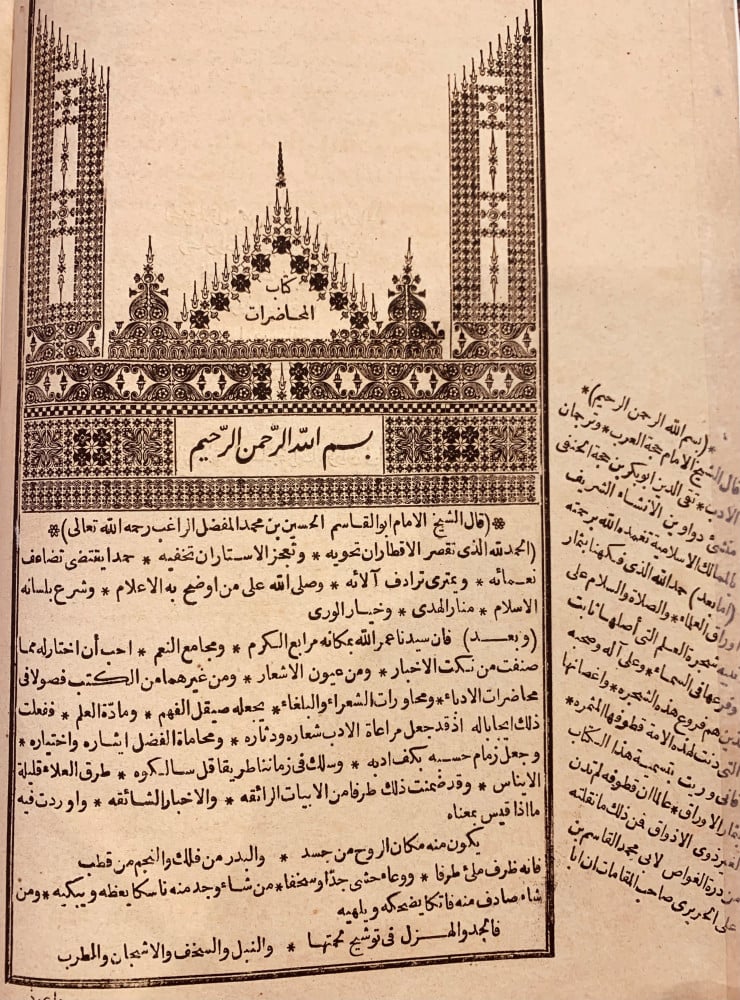 كتاب
المحاضرات
بسم الله الرحمن الرحيم
* (قال الشيخ الامام ابوالقاسم الحسين بن محمد المفضل الراغب رحمه الله تعالى) *
(الحمد لله الذى تقصر الاقطار ان تحويه * وتعجز الاستاران تخفيه * حمدا يقتضى تضاعف
نعمائه * ويمترى ترادف آلائه * وصلى الله على من اوضح به الاعلام * وشرع بلسانه
الاسلام * منار الهدى * وخيار الورى
(وبعد) فان سيدنا عمر الله بمكانه مرابع الكرم * ومجامع النعم * احب أن اختار له مما
صنفت من نكت الاخبار * ومن عيون الاشعار * ومن غيرهما من الكتب فصولا فى
محاضرات الادباء * ومحاورات الشعراء والبلغاء * يجعله صيقل الفهم * ومادّة العلم * ففعلت
ذلك ايجابا له اذ قد جعل مراعاة الادب شعاره ودثاره * ومحاماة الفضل ايثاره واختياره *
وجعل زمام حسبه بكف ادبه * وسلك فى زماننا طريقا قل سالكوه * طرق العلاء قليلة
الايناس * وقد ضمنت ذلك طرفا من الابيات الرائقه * والاخبار الشائقه * واوردت فيه
مااذا قيس بمعناه
يكون منه مكان الروح من جسد * والبدر من فلك والنجم من قطب
فانه ظرف ملئ طرفا * ووعاء حشى جدّا وسخفا * من شاء وجد منه ناسكا يعظه ويبكيه * ومن
شاء صادف منه فاتكا يضحكه ويلهيه
فالجد والهزل فى توشيح لحمتها * والنبل والسخف والاشجان والطرب
* (بسم الله الرحمن الرحيم) *
قال الشيخ الامام حجة العرب * وترجمان
الادب * تقى الدين ابوبكر بن حجة الحنفى
منشئ دواوين الانشاء الشريف
بالممالك الاسلامية تغمده الله برحمته
(امابعد) حمد الله الذى فكهنا بثمار
اوراق العلماء * والصلاة والسلام على
نبيه شجرة العلم التى أصلها ثابت
وفرعها فى السماء * وعلى آله وصحبه
الذين هم فروع هذه الشجره * واغصانها
التى دنت لهذه الامة قطوفها المثمره *
فانى وريت بتسمية هذا الكتاب
بثمار الاوراق * عالما ان قطوفه لم تدن
لغير ذوى الاذواق فمن ذلك ما نقلته
من درة الغواص لابى محمد القاسم بن
على الحريرى صاحب المقامات ان ابا